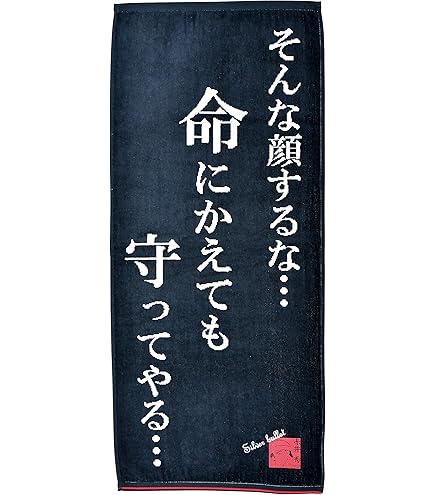 そんな顔するな…
命にかえても
守ってやる…
Silver bullet